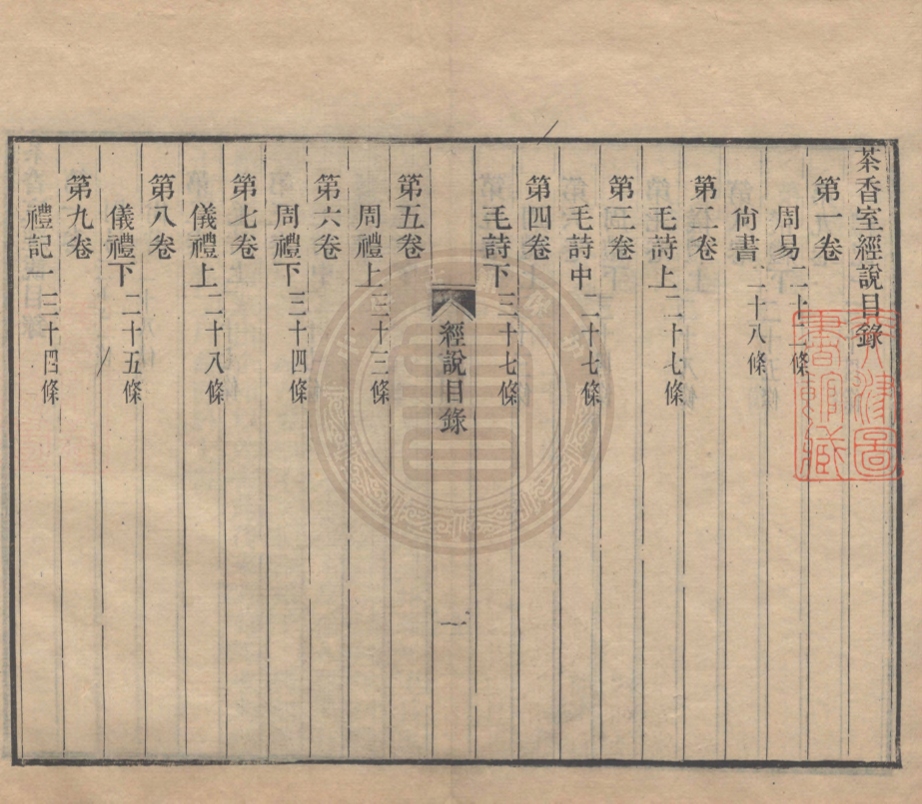 茶香室經說目錄
第一卷
周易二十二條
尚書二十八條
第二卷
毛詩上二十七條
第三卷
毛詩中二十七條
第四卷
毛詩下三十七條
經說目錄
一
第五卷
周禮上三十三條
第六卷
周禮下三十四條
第七卷
儀禮上二十八條
第八卷
儀禮下二十五條
第九卷
禮記一三十四條
天津圖
書館藏